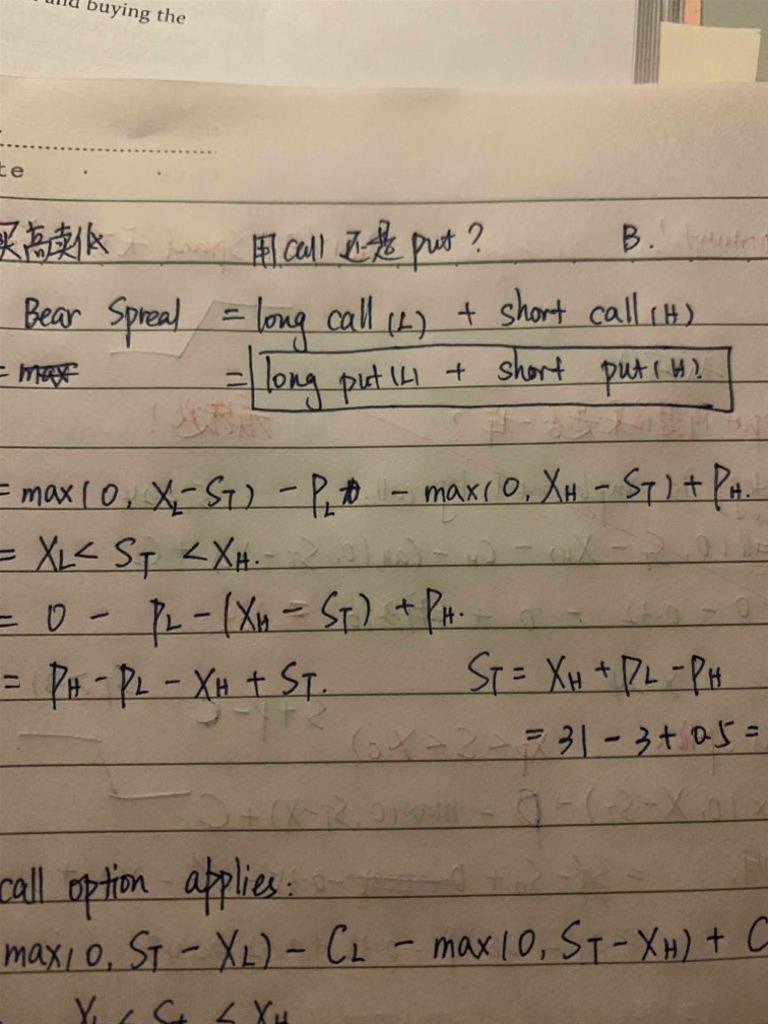 and buying the
te
买高卖低 用 call 还是 put? B.
Bear Spreal = long call (L) + short call (H)
= max = long put (L) + short put (H)
= max(0, XL - ST) - PL - max(0, XH - ST) + PH.
= XL < ST < XH.
= 0 - PL - (XH - ST) + PH.
= PH - PL - XH + ST. ST = XH + PL - PH
= 31 - 3 + 0.5 =
call option applies:
max(0, ST - XL) - CL - max(0, ST - XH) + C
XL < St < XH